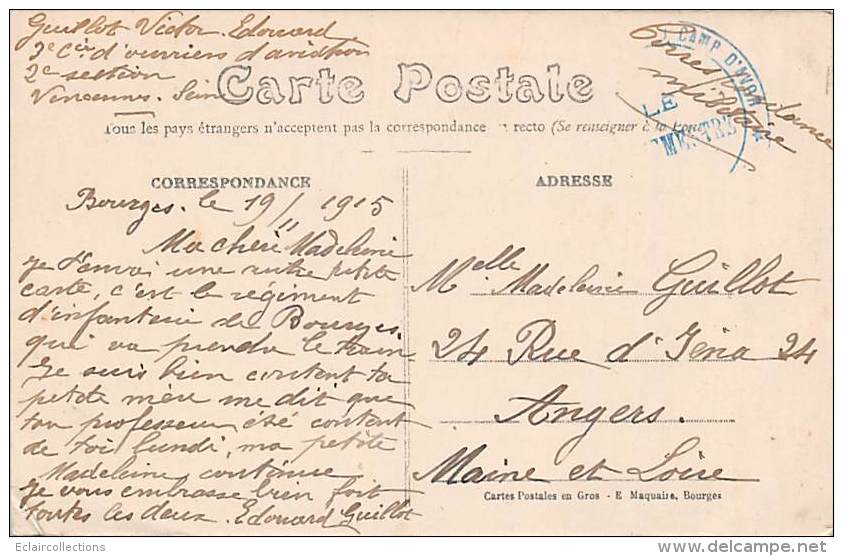 Guillot Victor Edouard
3e Cie d'ouvriers d'aviation
2e section
Vincennes. Seine
Correspondance
militaire
CAMP D'AVOR
LE
Carte Postale
Tous les pays étrangers n'acceptent pas la correspondance recto (Se renseigner à la Poste)
CORRESPONDANCE
Bourges. le 19/11 1915
Ma cheri Madeleine
Je t'envoi une autre petite
carte, c'est le régiment
d'infanterie de Bourges.
qui va prendre le train
Je suis bien content ta
petite mère me dit que
ton professeur été content
de toi lundi, ma petite
Madeleine continue
Je vous embrasse bien fort
toutes les deux. Edouard Guillot
ADRESSE
Melle Madeleine Guillot
24 Rue d'Iena 24
Angers.
Maine et Loire
Cartes Postales en Gros - E Maquaire, Bourges
Eclaircollections
www.delcampe.net